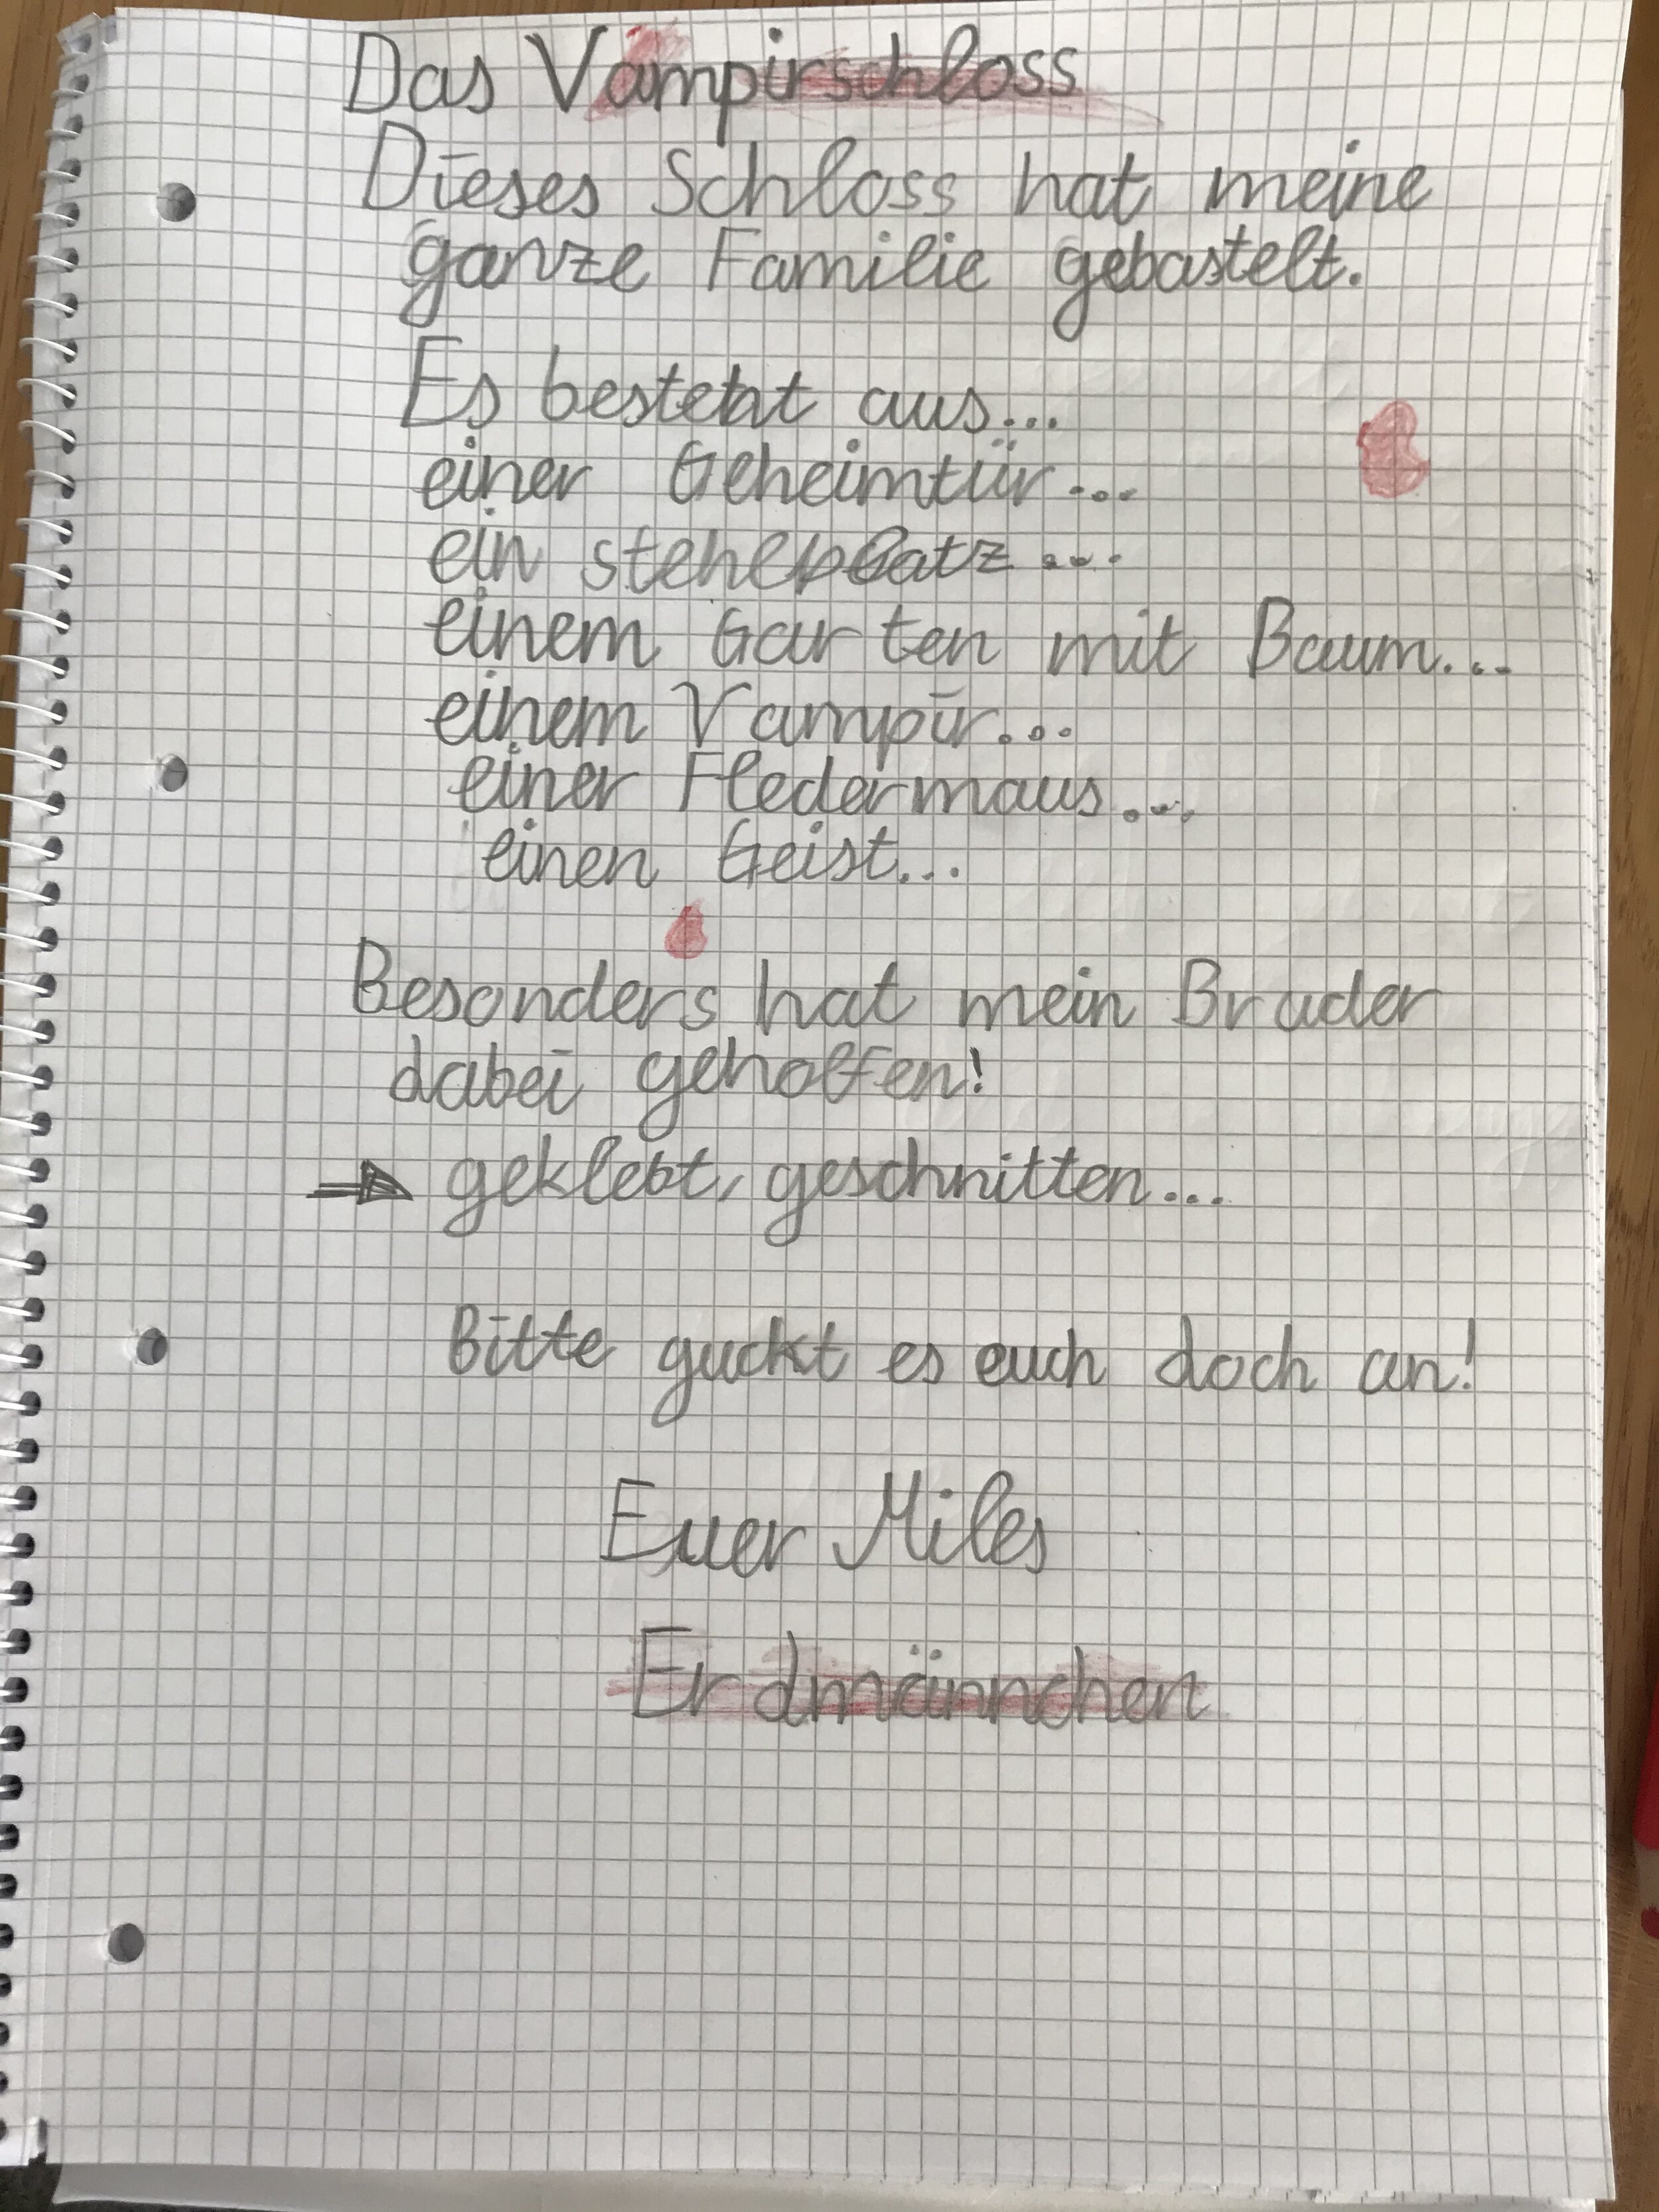 Das Vampirschloss
Dieses Schloss hat meine
ganze Familie gebastelt.
Es besteht aus...
einer Geheimtür...
ein stehlplatz...
einem Garten mit Baum...
einem Vampir...
einer Fledermaus...
einen Geist...
Besonders hat mein Bruder
dabei geholfen!
geklebt, geschnitten...
Bitte guckt es euch doch an!
Euer Miles
Erdmännchen